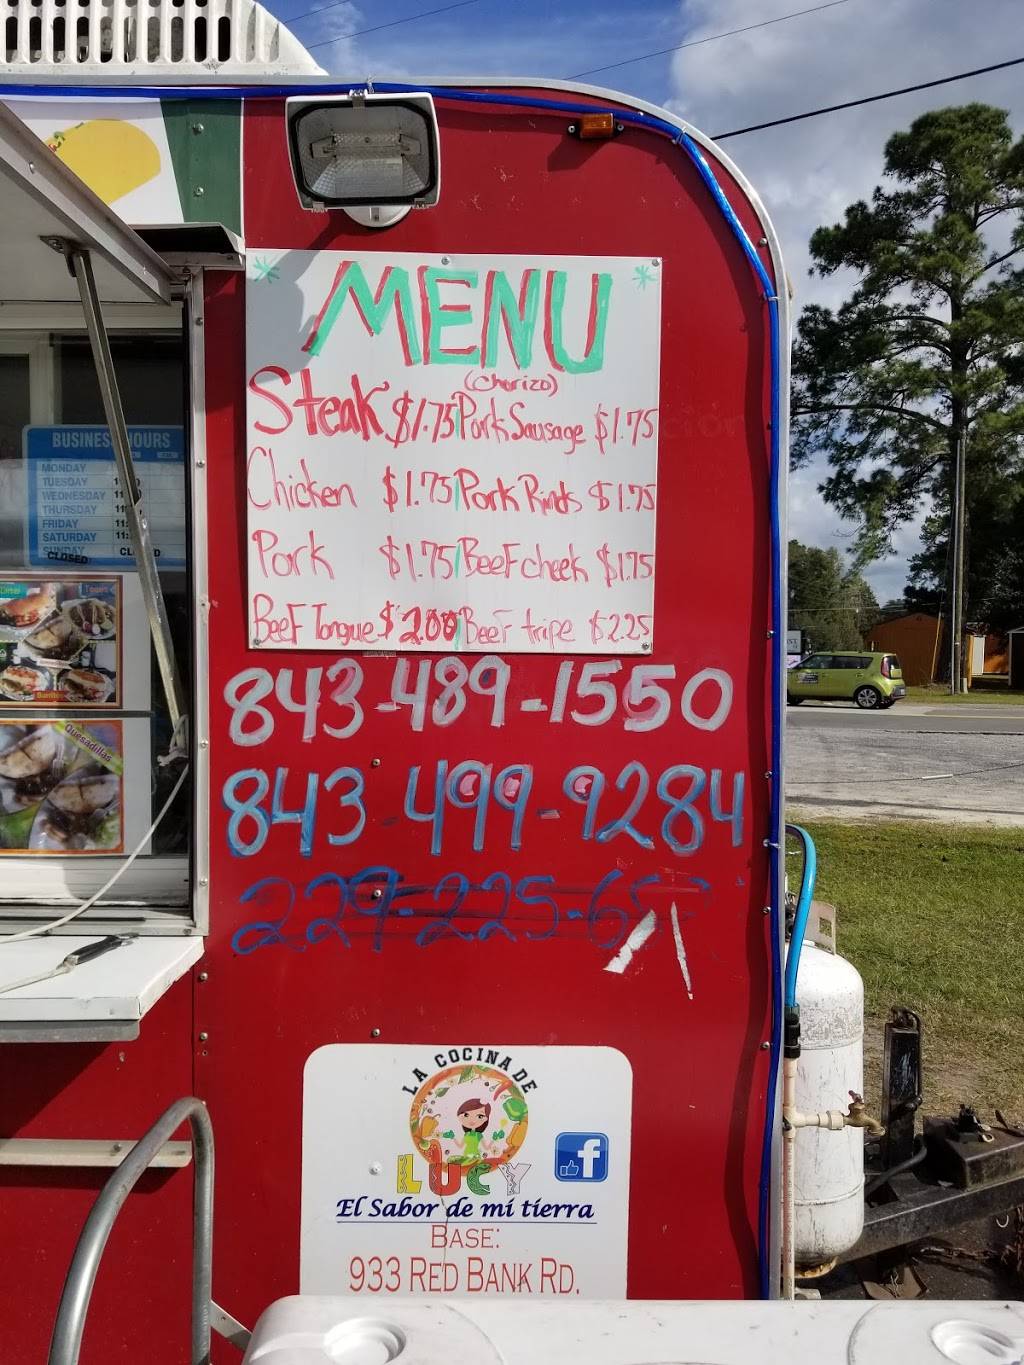 MENU
(Chorizo)
Steak $1.75 Pork Sausage $1.75
Chicken $1.75 Pork Rinds $1.75
Pork $1.75 Beef cheek $1.75
Beef Tongue $2.00 Beef tripe $2.25
843-489-1550
843-499-9284
229-225-6
BUSINESS HOURS
MONDAY
TUESDAY
WEDNESDAY
THURSDAY
FRIDAY
SATURDAY
SUNDAY CLOSED
CLOSED
Tacos
Burritos
Quesadillas
LA COCINA DE
LUCY
El Sabor de mi tierra
BASE:
933 RED BANK RD.
f